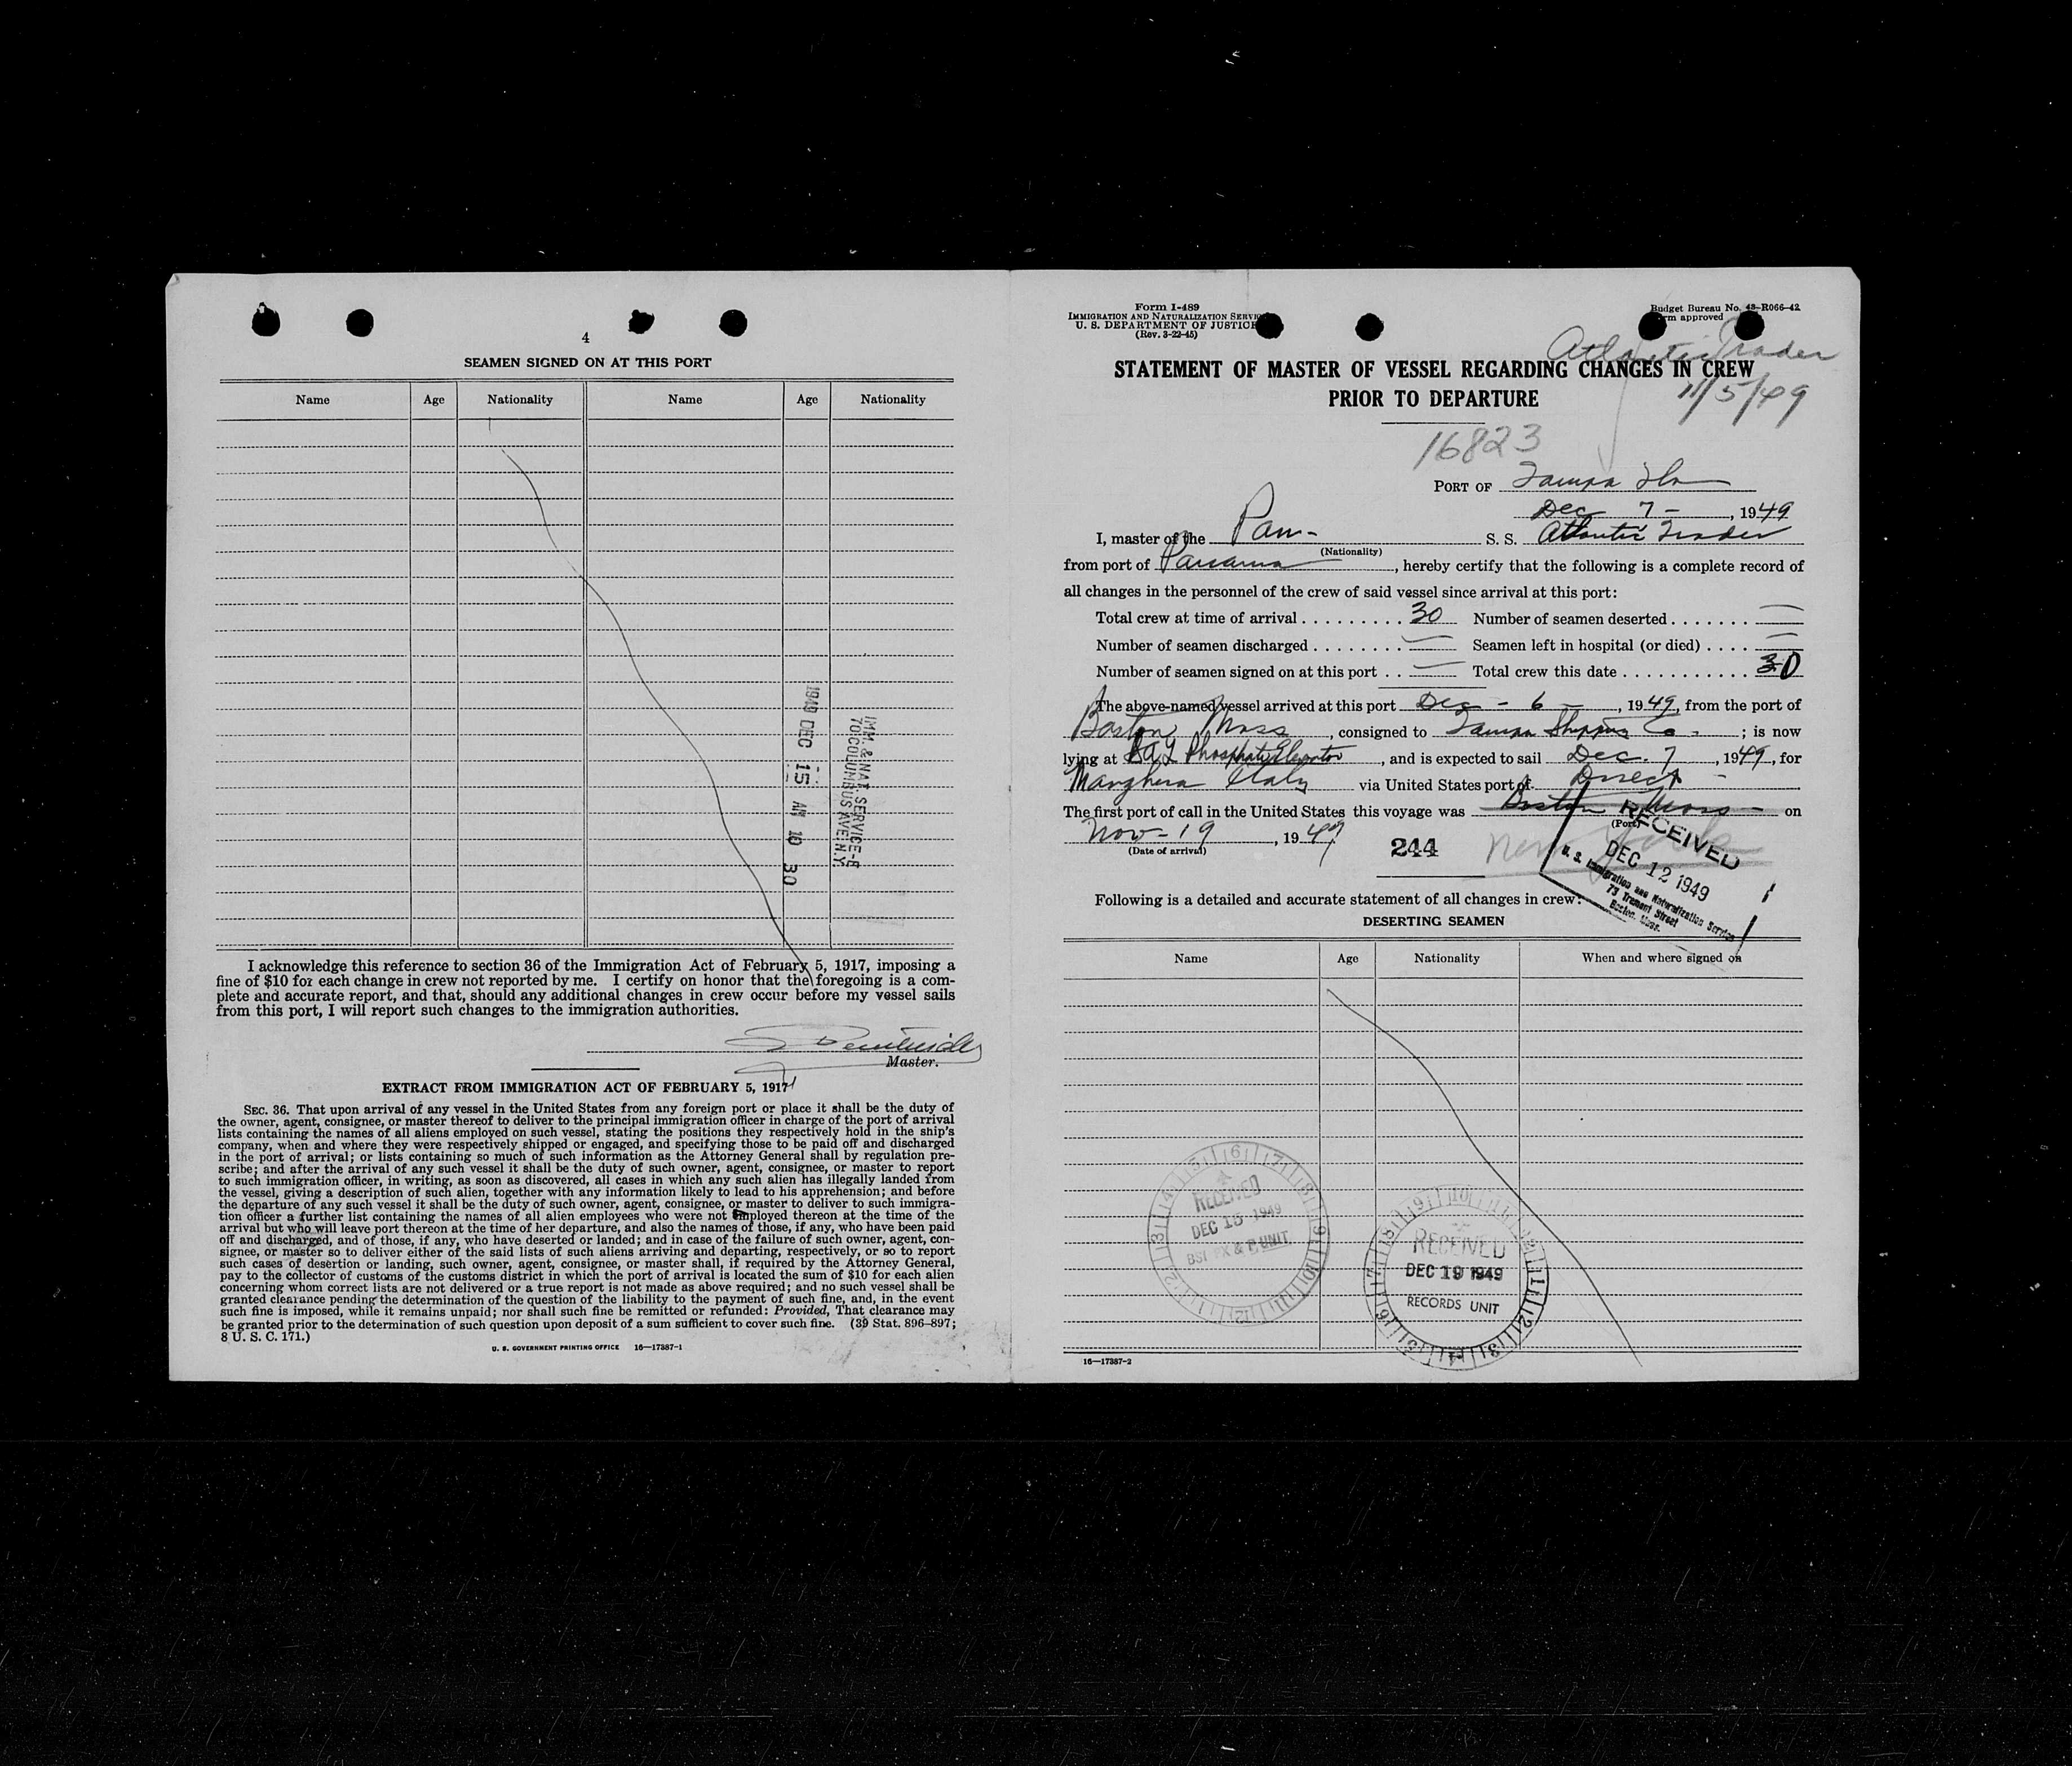 4
SEAMEN SIGNED ON AT THIS PORT
Name Age Nationality Name Age Nationality
1949 DEC 15 AM 10 30
IMM. & NAT. SERVICE-E
70 COLUMBUS AVE. N.Y.
I acknowledge this reference to section 36 of the Immigration Act of February 5, 1917, imposing a
fine of $10 for each change in crew not reported by me. I certify on honor that the foregoing is a com-
plete and accurate report, and that, should any additional changes in crew occur before my vessel sails
from this port, I will report such changes to the immigration authorities.
Master.
EXTRACT FROM IMMIGRATION ACT OF FEBRUARY 5, 1917
SEC. 36. That upon arrival of any vessel in the United States from any foreign port or place it shall be the duty of
the owner, agent, consignee, or master thereof to deliver to the principal immigration officer in charge of the port of arrival
lists containing the names of all aliens employed on such vessel, stating the positions they respectively hold in the ship's
company, when and where they were respectively shipped or engaged, and specifying those to be paid off and discharged
in the port of arrival; or lists containing so much of such information as the Attorney General shall by regulation pre-
scribe; and after the arrival of any such vessel it shall be the duty of such owner, agent, consignee, or master to report
to such immigration officer, in writing, as soon as discovered, all cases in which any such alien has illegally landed from
the vessel, giving a description of such alien, together with any information likely to lead to his apprehension; and before
the departure of any such vessel it shall be the duty of such owner, agent, consignee, or master to deliver to such immigra-
tion officer a further list containing the names of all alien employees who were not employed thereon at the time of the
arrival but who will leave port thereon at the time of her departure, and also the names of those, if any, who have been paid
off and discharged, and of those, if any, who have deserted or landed; and in case of the failure of such owner, agent, con-
signee, or master so to deliver either of the said lists of such aliens arriving and departing, respectively, or so to report
such cases of desertion or landing, such owner, agent, consignee, or master shall, if required by the Attorney General,
pay to the collector of customs of the customs district in which the port of arrival is located the sum of $10 for each alien
concerning whom correct lists are not delivered or a true report is not made as above required; and no such vessel shall be
granted clearance pending the determination of the question of the liability to the payment of such fine, and, in the event
such fine is imposed, while it remains unpaid; nor shall such fine be remitted or refunded: Provided, That clearance may
be granted prior to the determination of such question upon deposit of a sum sufficient to cover such fine. (39 Stat. 896-897;
8 U. S. C. 171.)
U. S. GOVERNMENT PRINTING OFFICE 16—17387-1
Form I-489
IMMIGRATION AND NATURALIZATION SERVICE
U. S. DEPARTMENT OF JUSTICE
(Rev. 3-22-45)
Budget Bureau No. 43-R066-42
approved
Atlantic Trader
STATEMENT OF MASTER OF VESSEL REGARDING CHANGES IN CREW
PRIOR TO DEPARTURE
11/5/49
16823
PORT OF Tampa Fla
Dec 7 - , 1949
I, master of the Pan- S. S. Atlantic Trader
(Nationality)
from port of Panama , hereby certify that the following is a complete record of
all changes in the personnel of the crew of said vessel since arrival at this port:
Total crew at time of arrival . . . . . . . . . 30 Number of seamen deserted . . . . . . . —
Number of seamen discharged . . . . . . . . — Seamen left in hospital (or died) . . . . —
Number of seamen signed on at this port . . — Total crew this date . . . . . . . . . . . 30
The above-named vessel arrived at this port Dec - 6 - , 1949, from the port of
Boston Mass , consigned to Tampa Shipping Co - ; is now
lying at Phosphate Elevator , and is expected to sail Dec. 7 , 1949, for
Marghera Italy via United States port of Direct -
The first port of call in the United States this voyage was Boston Mass - on
(Port)
Nov - 19 , 1949
(Date of arrival)
244
New York
RECEIVED
DEC 12 1949
U. S. Immigration and Naturalization Service
73 Tremont Street
Boston, Mass.
Following is a detailed and accurate statement of all changes in crew:
DESERTING SEAMEN
Name Age Nationality When and where signed on
RECEIVED
DEC 15 1949
UNIT
RECEIVED
DEC 19 1949
RECORDS UNIT
16—17387-2